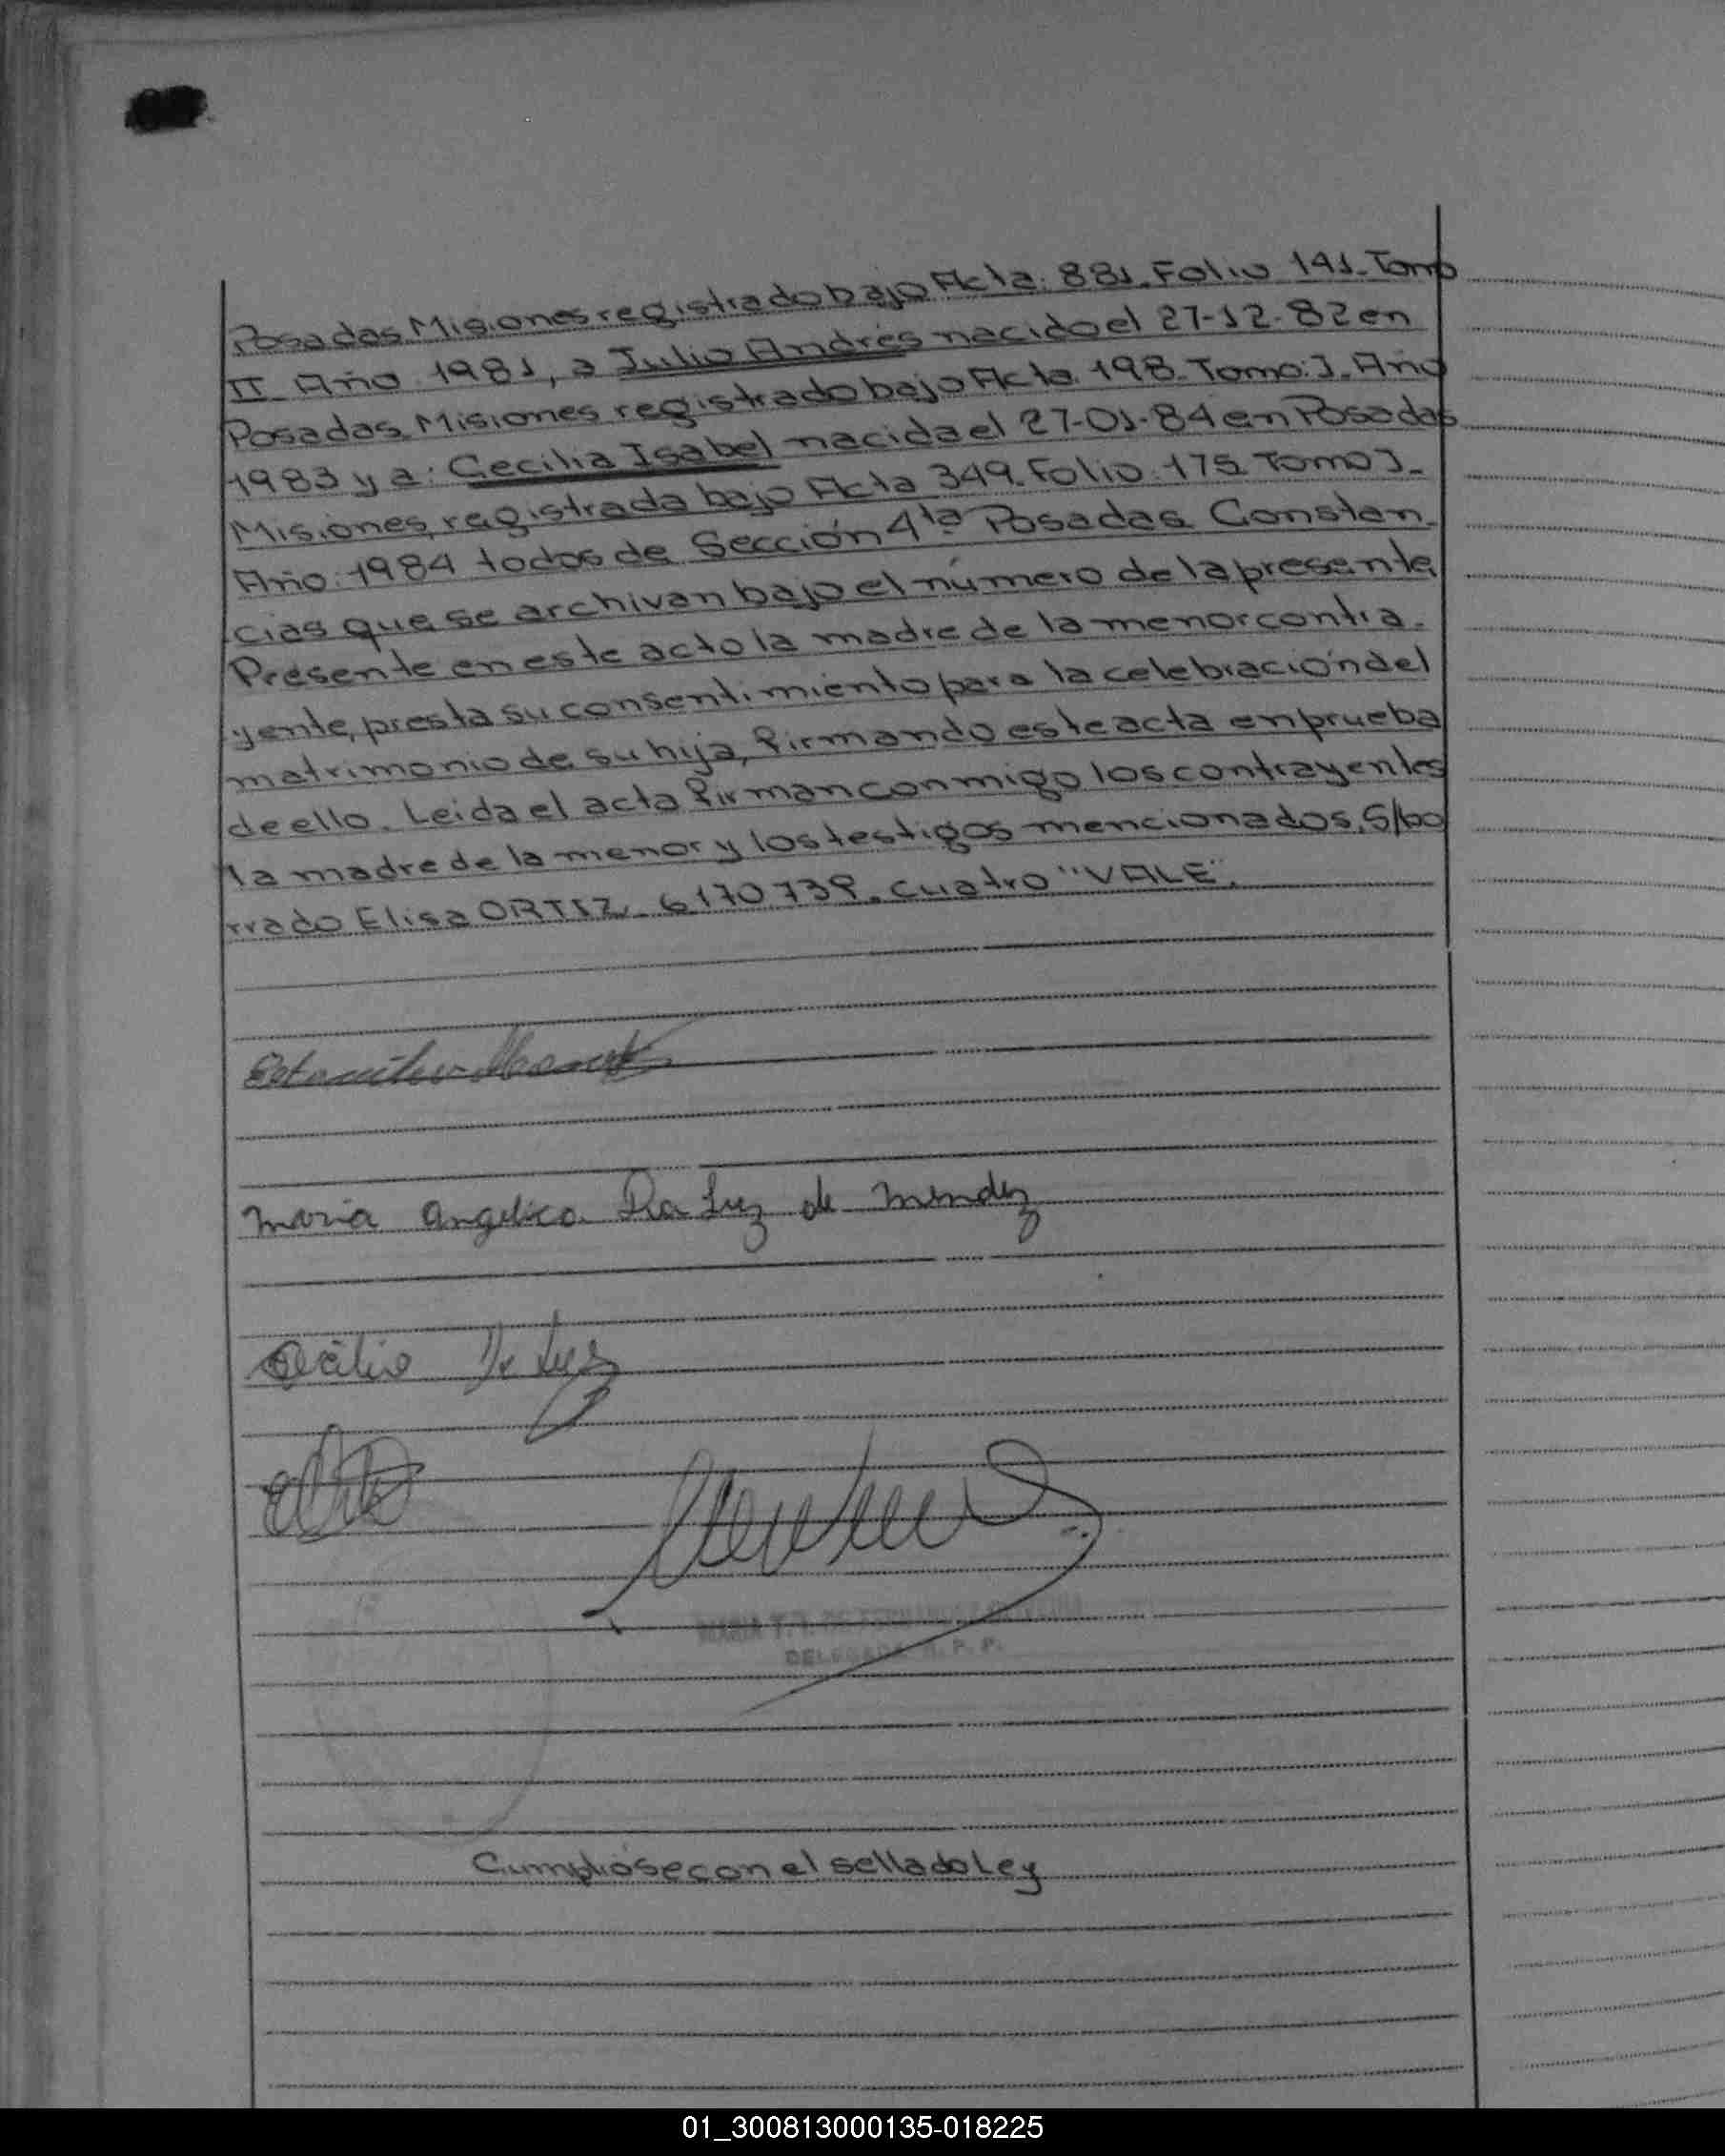 Posadas Misiones registrado bajo Acta: 881. Folio 141. Tomo
II. Año 1981, a Julio Andrés nacido el 27-12-82 en
Posadas Misiones registrado bajo Acta. 198. Tomo: I. Año
1983 y a: Cecilia Isabel nacida el 27-01-84 en Posadas
Misiones, registrada bajo Acta 349. Folio: 175 Tomo I.
Año: 1984 todos de Sección 4ta Posadas. Constan-
cias que se archivan bajo el número de la presente,
Presente en este acto la madre de la menor contra-
yente, presta su consentimiento para la celebración del
matrimonio de su hija, firmando este acta en prueba
de ello. Leída el acta firman conmigo los contrayentes
la madre de la menor y los testigos mencionados. S/bo
rrado Elisa ORTIZ. 6170.739. cuatro "VALE".
Maria Angelica Da Luz de Mendez
Da Luz
MARIA T. DE
DELEGADA R. P. P.
Cumplióse con el sellado Ley
01_300813000135-018225